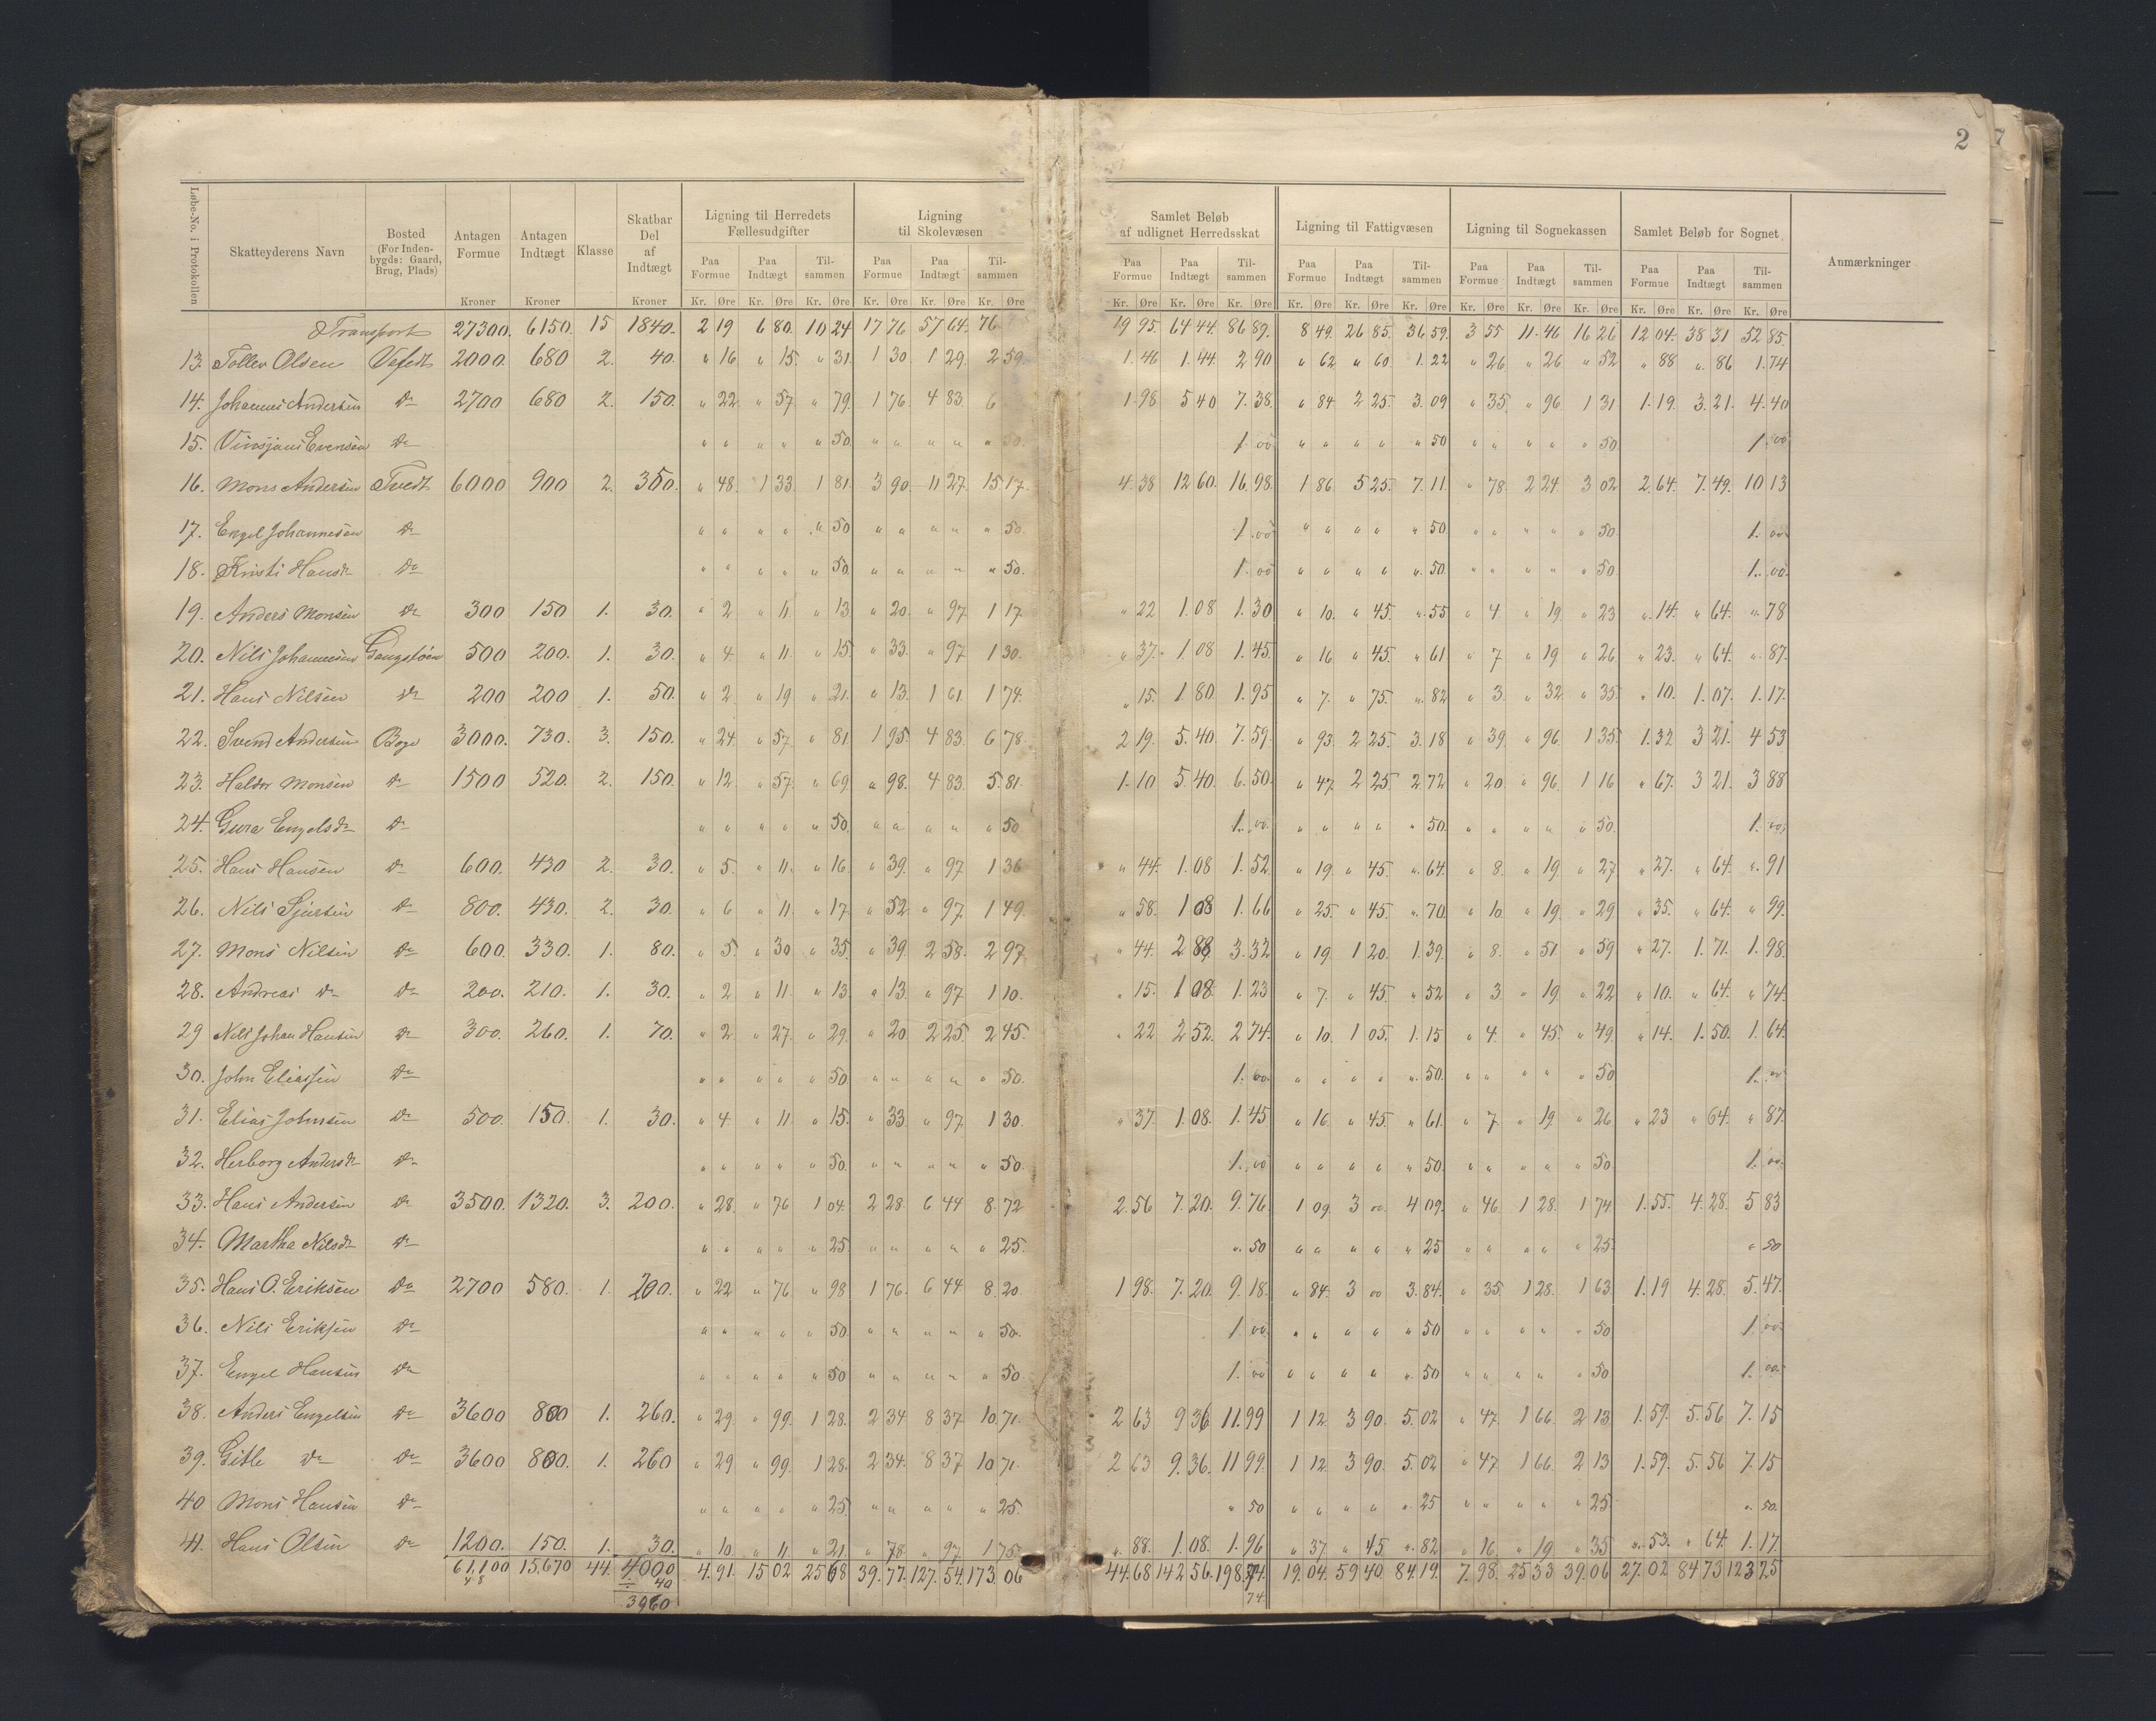 2 7
Løbe-No. i Protokollen | Skatteyderens Navn | Bosted (For Indenbygds: Gaard, Brug, Plads) | Antagen Formue Kroner | Antagen Indtægt Kroner | Klasse | Skatbar Del af Indtægt Kroner | Ligning til Herredets Fællesudgifter: Paa Formue Kr. Øre, Paa Indtægt Kr. Øre, Tilsammen Kr. Øre | Ligning til Skolevæsen: Paa Formue Kr. Øre, Paa Indtægt Kr. Øre, Tilsammen Kr. Øre | Samlet Beløb af udlignet Herredsskat: Paa Formue Kr. Øre, Paa Indtægt Kr. Øre, Tilsammen Kr. Øre | Ligning til Fattigvæsen: Paa Formue Kr. Øre, Paa Indtægt Kr. Øre, Tilsammen Kr. Øre | Ligning til Sognekassen: Paa Formue Kr. Øre, Paa Indtægt Kr. Øre, Tilsammen Kr. Øre | Samlet Beløb for Sognet: Paa Formue Kr. Øre, Paa Indtægt Kr. Øre, Tilsammen Kr. Øre | Anmærkninger
Transport 27300. 6150. 15 1840. 2 19 6 80. 10 24 17 76 57 64. 76 19 95. 64 44. 86 89. 8 49. 26 85. 36 59. 3 55 11 46 16 26 12 04. 38 31 52 85.
13. Tollev Olsen 2000. 680 2. 40. " 16 " 15 " 31. 1 30. 1 29. 2 59. 1.46 1.44. 2 90 " 62 " 60 1.22 " 26 " 26 " 52 " 88 " 86 1.74
14. Johannes Andersen Do 2700 680 2. 150. " 22. " 57 " 79. 1 76. 4 83. 6 1.98. 5 40 7.38. " 84 2 25. 3.09 " 35. " 96 1 31 1.19. 3.21. 4.40
15. Evensen Do " " " " " 50. " " " " " 50. 1.00 " " " " " 50 " " " " " 50 1.00
16. Mons Andersen Tvedt 6000 900 2. 350. " 48. 1 33. 1 81. 3 90. 11 27. 15 17. 4.38 12 60. 16.98. 1 86 5 25. 7.11. " 78. 2 24 3 02 2.64. 7.49. 10 13
17. Engel Johannesen Do " " " " " 50 " " " " " 50. 1.00 " " " " " 50. " " " " " 50. 1.00
18. Kristi Hansdr Do " " " " " 50. " " " " " 50. 1.00 " " " " " 50. " " " " " 50. 1.00.
19. Anders Monsen Do 300 150 1. 30. " 2 " 11. " 13 " 20. " 97. 1 17. " 22 1.08 1.30 " 10. " 45. " 55 " 4 " 19 " 23 " 14. " 64. " 78
20. Nils Johannesen Gangstøen 500 200. 1. 30. " 4. " 11. " 15. " 33. " 97 1 30. " 37. 1.08 1.45. " 16 " 45. " 61. " 7 " 19 " 26 " 23. " 64. " 87.
21. Hans Nilsen Do 200 200 1. 50. " 2 " 19 " 21. " 13. 1 61. 1 74. " 15. 1 80. 1.95 " 7. " 75. " 82 " 3. " 32. " 35. " 10. 1.07. 1.17.
22. Svend Andersen Boge 3000. 730. 3. 150. " 24. " 57 " 81. 1 95. 4 83. 6 78. 2 19. 5.40. 7.59. " 93. 2 25. 3.18 " 39. " 96 1 35. 1.32 3 21. 4 53
23. Haldor Monsen Do 1500 520. 2. 150. " 12. " 57. " 69. " 98. 4 83. 5.81. 1.10 5.40. 6.50. " 47. 2 25. 2 72 " 20 " 96. 1 16 " 67. 3 21. 3 88
24. Gura Engelsdr Do " " " " " 50. " " " " " 50 1.00. " " " " " 50. " " " " " 50. 1.00
25. Hans Hansen Do 600. 430 2. 30. " 5. " 11. " 16. " 39. " 97 1 36 " 44. 1.08 1.52. " 19. " 45. " 64. " 8. " 19 " 27 " 27. " 64. " 91
26. Nils Sjursen Do 800. 430. 2. 30. " 6 " 11. " 17. " 52. " 97. 1 49. " 58. 1 08 1.66 " 25. " 45. " 70. " 10. " 19. " 29 " 35. " 64. " 99.
27. Mons Nilsen Do 600. 330. 1. 80. " 5. " 30 " 35. " 39. 2 58. 2 97. " 44. 2 88 3.32 " 19. 1 20. 1.39. " 8. " 51. " 59 " 27. 1.71. 1.98.
28. Andreas Do Do 200. 210. 1. 30. " 2 " 11. " 13. " 13. " 97. 1 10. " 15. 1 08. 1.23 " 7. " 45. " 52 " 3. " 19. " 22 " 10. " 64. " 74.
29 Nils Johan Hansen Do 300. 260. 1. 70. " 2 " 27. " 29. " 20 2 25. 2 45. " 22 2 52. 2 74. " 10. 1 05. 1.15 " 4. " 45. " 49. " 14. 1.50. 1.64.
30. John Eliassen Do " " " " " 50. " " " " " 50. 1.00. " " " " " 50. " " " " " 50 1.00
31. Elias Johnsen Do 500. 150. 1. 30. " 4. " 11. " 15. " 33. " 97. 1 30. " 37. 1.08. 1.45 " 16. " 45. " 61. " 7. " 19. " 26. " 23 " 64. " 87.
32. Herborg Andersdr Do " " " " " 50. " " " " " 50. 1.00 " " " " " 50. " " " " " 50. 1.00
33. Hans Andersen Do 3500. 1320. 3. 200. " 28. " 76 1 04. 2 28. 6 44 8.72 2.56 7.20. 9.76 1 09. 3 00. 4 09. " 46. 1 28. 1 74. 1.55. 4.28. 5 83
34. Martha Nilsdr Do " " " " " 25. " " " " " 25. " 50 " " " " " 25 " " " " " 25. " 50
35. Hans O. Eriksen Do 2700 580. 1. 200. " 22 " 76 " 98 1 76. 6 44. 8.20. 1 98. 7.20. 9.18. " 84. 3 00 3.84. " 35. 1 28. 1 63. 1.19 4.28. 5.47.
36. Nils Eriksen Do " " " " " 50. " " " " " 50. 1.00 " " " " " 50 " " " " " 50 1.00
37. Engel Hansen Do " " " " " 50 " " " " " 50. 1.00 " " " " " 50 " " " " " 50 1.00
38. Anders Engelsen Do 3600 800 1. 260. " 29. " 99. 1 28. 2 34. 8 37 10 71. 2 63 9 36 11.99 1 12. 3 90. 5.02 " 47. 1 66. 2 13 1.59. 5.56 7.15
39. Gitle Do Do 3600 800. 1. 260 " 29 " 99. 1 28. 2 34. 8 37 10 71. 2 63 9.36. 11 99. 1 12. 3 90. 5.02 " 47. 1 66. 2 13 1.59. 5.56 7.15
40 Mons Hansen Do " " " " " 25. " " " " " 25. " 50 " " " " " 25 " " " " " 25 " 50.
41. Hans Olsen Do 1200. 150. 1. 30. " 10. " 11. " 21. " 78. " 97. 1 75. " 88. 1.08. 1.96 " 37 " 45. " 82 " 16. " 19 " 35 " 53. " 64. 1.17.
61,100 15,670 44. 4000 4.91. 15 02 25 68 39.77. 127.54. 173.06 44.68 142 56. 198.74. 19.04. 59 40. 84.19. 7.98. 25 33 39.06 27.02 84 73 123 75
48 ÷ 40 74
3960